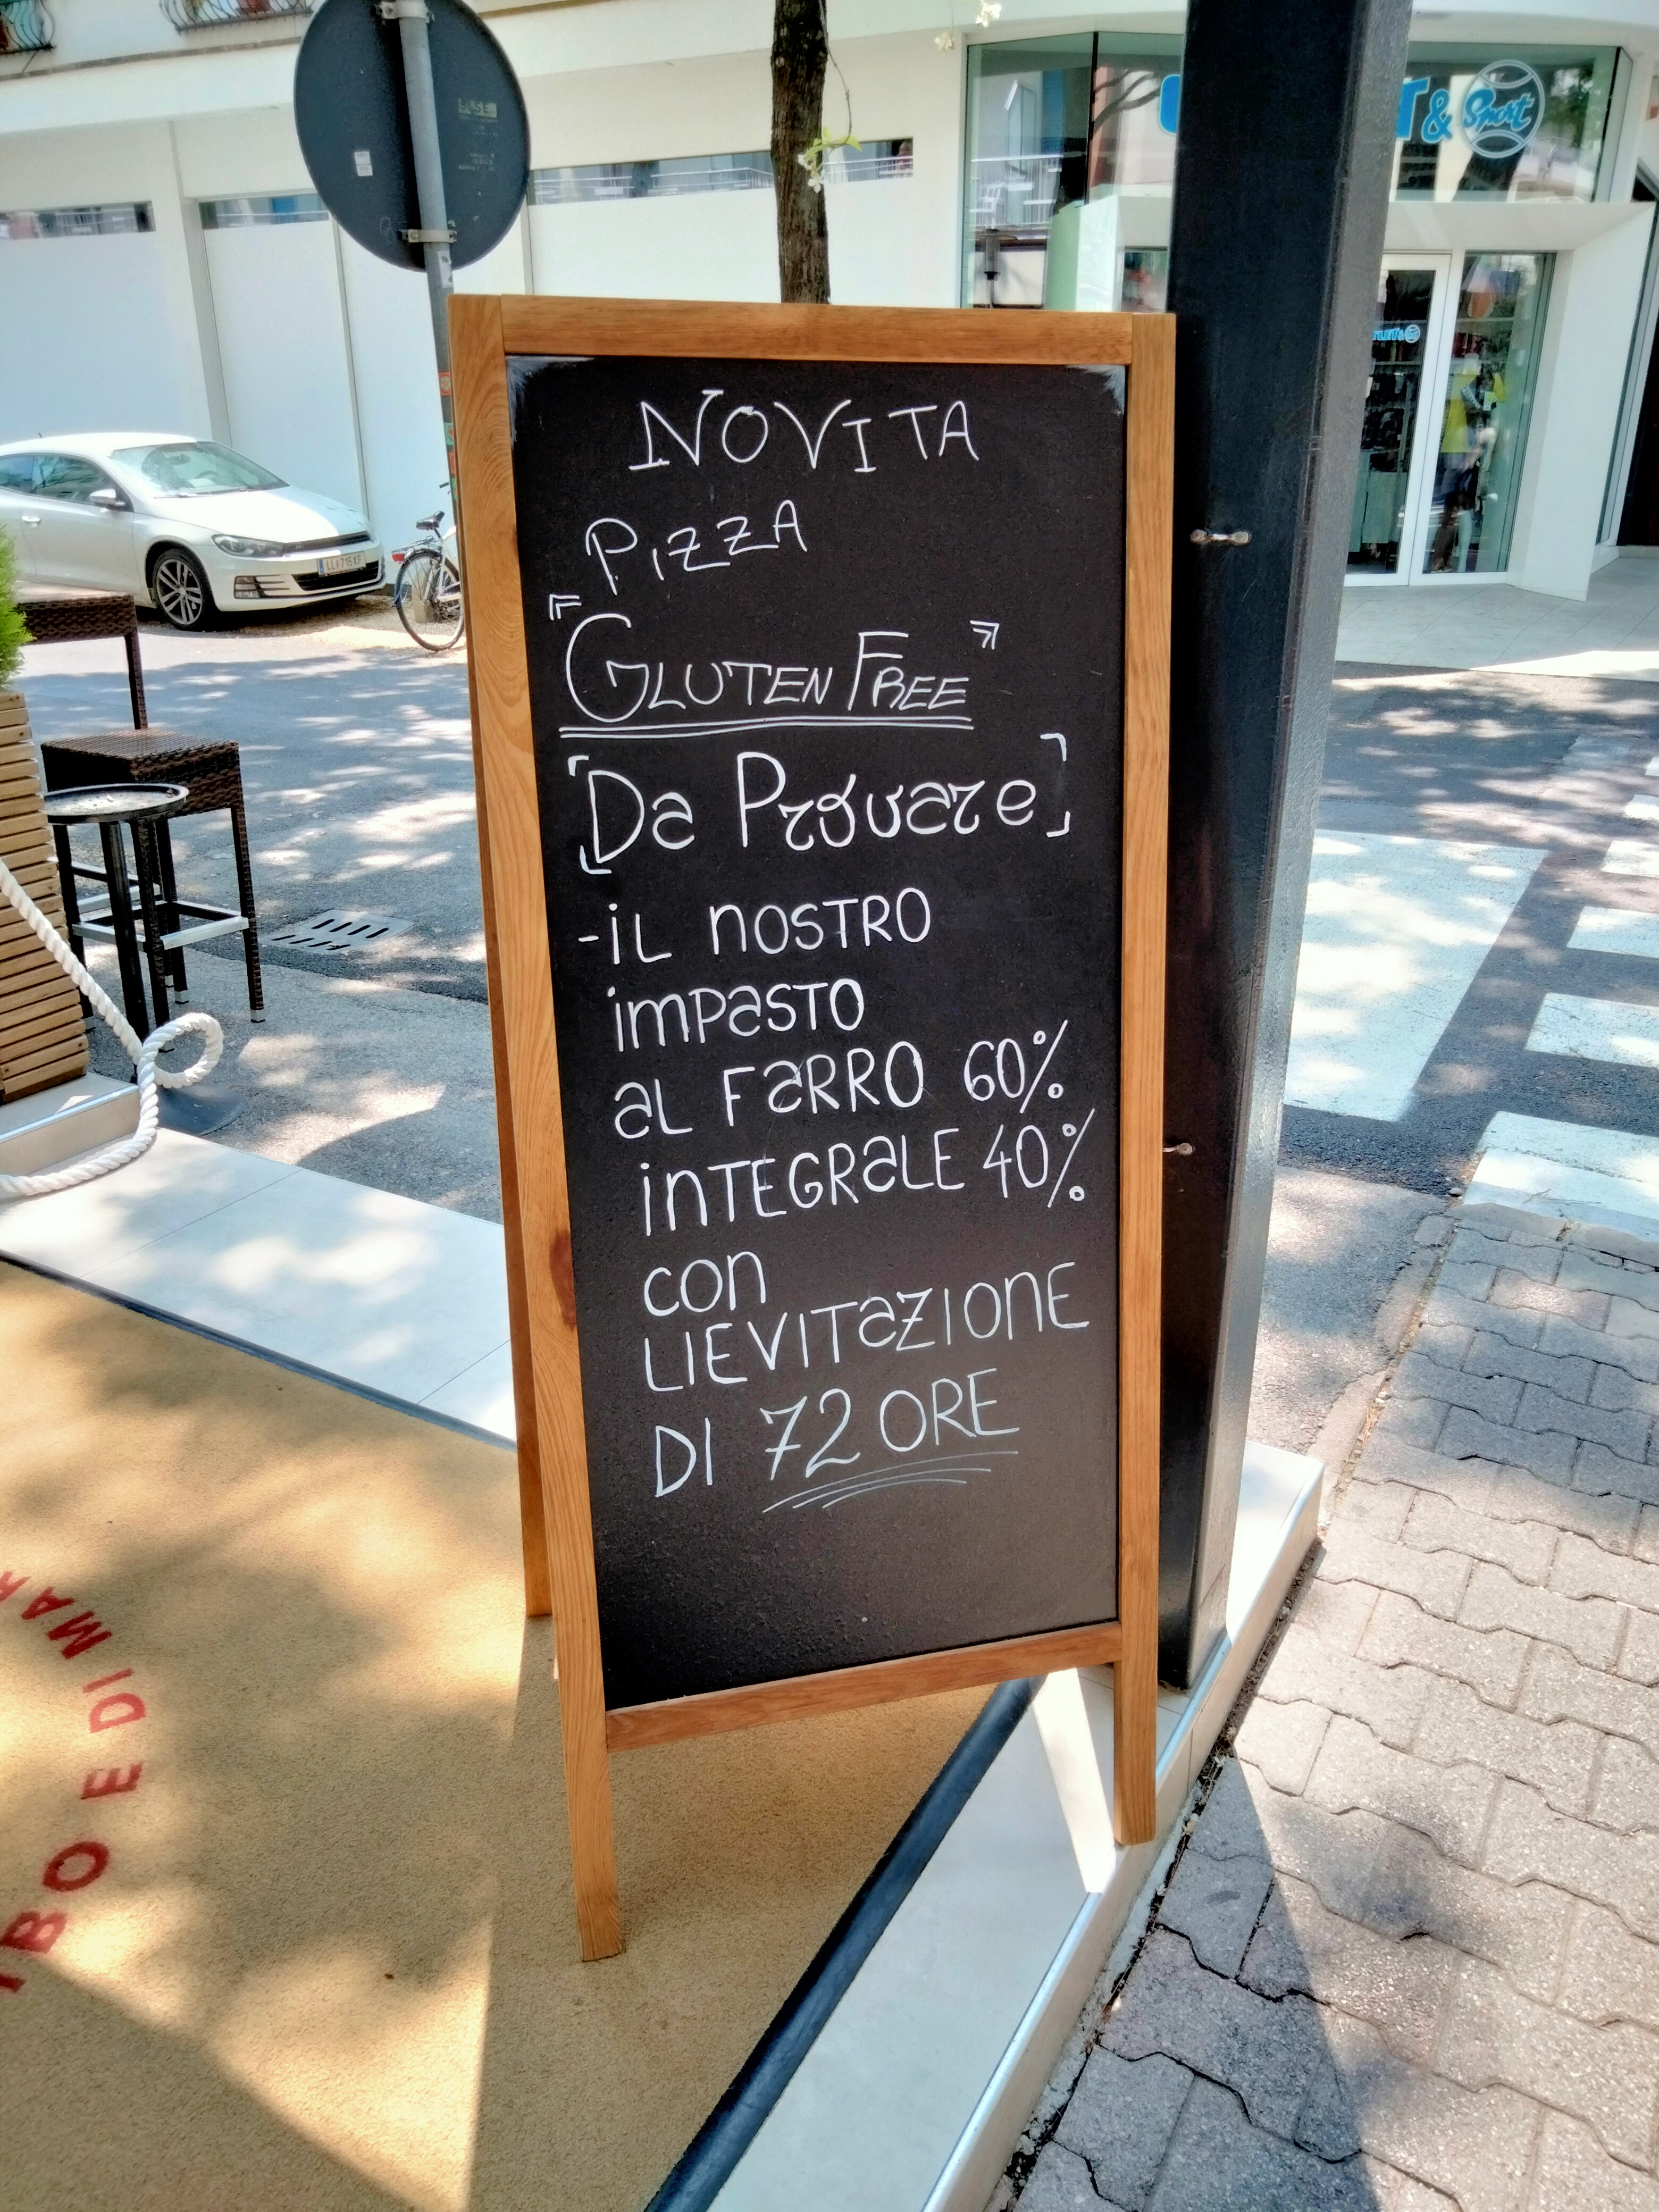 NOVITA
PIZZA
"GLUTEN FREE"
[Da Provare]
-iL NOSTRO
IMPaSTO
aL FaRRO 60%
INTEGRaLE 40%
CON
LIEVITaZIONE
DI 72 ORE
T& Sport
TLET&
IBO E DI MAR